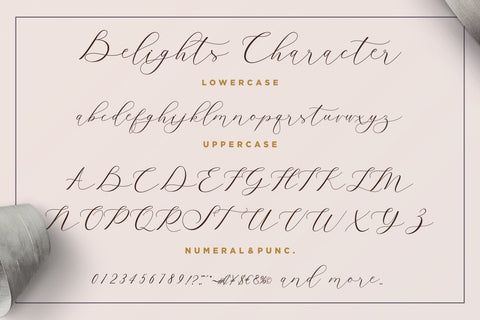 Belights Character
LOWERCASE
abcdefghijklmnopqrstuvwxyz
UPPERCASE
A B C D E F G H I J K L M
N O P Q R S T U V W X Y Z
NUMERAL&PUNC.
0123456789!? and more..